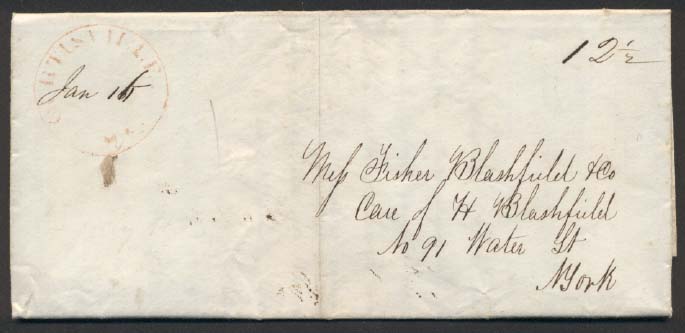 CURTISVILLE
Jan 16
12½
Mess Fisher Blashfield & Co
Care of H Blashfield
No 91 Water St
N York